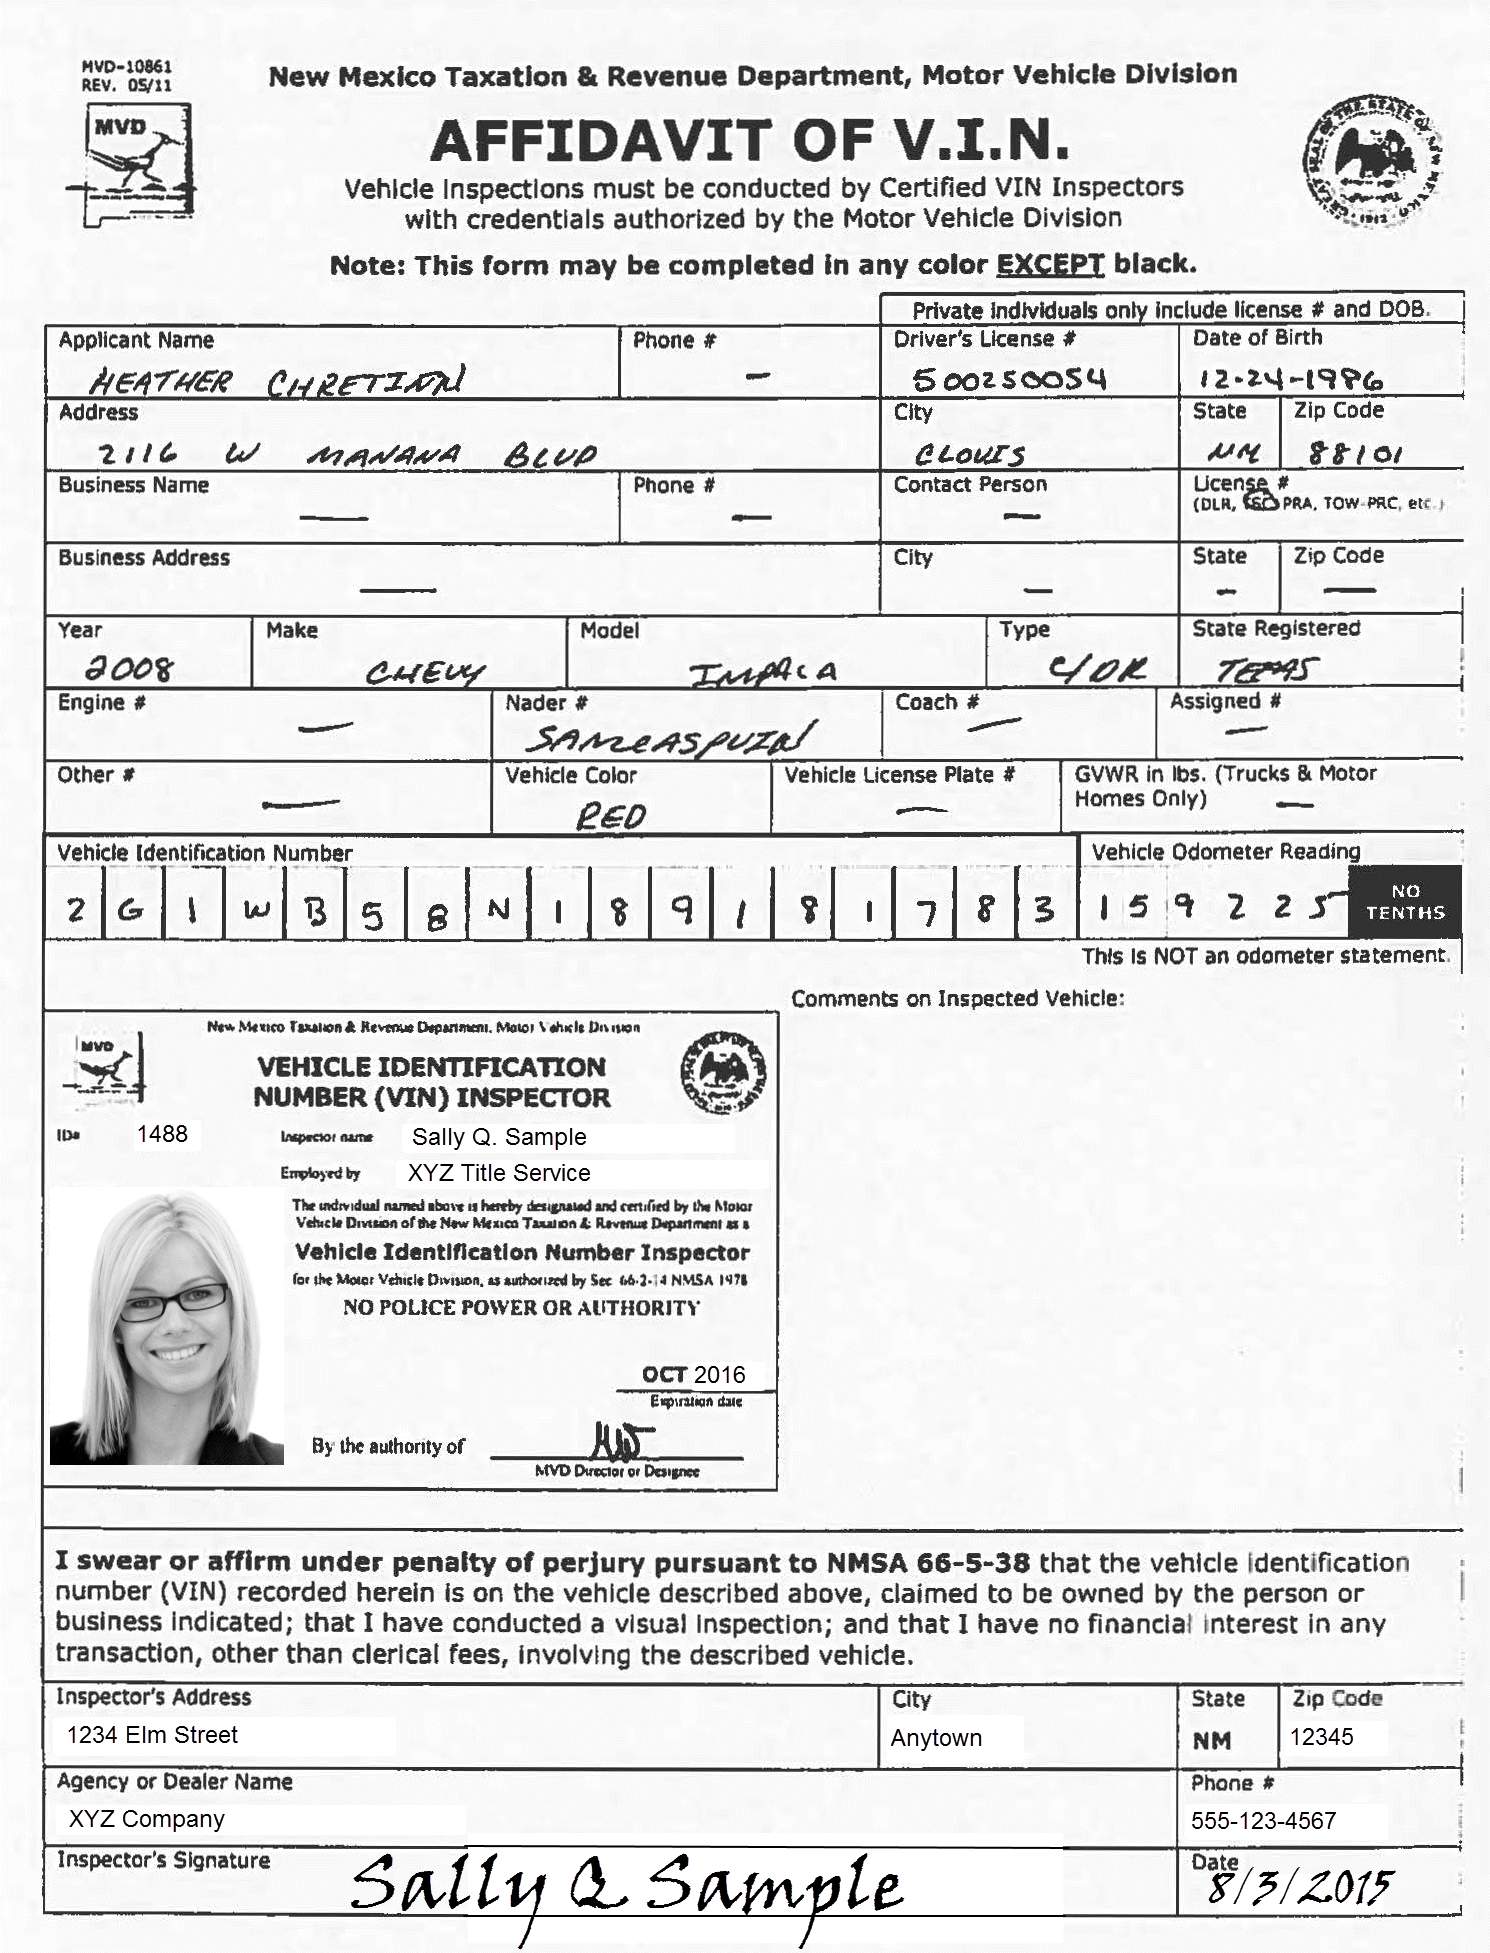 MVD-10861
REV. 05/11
New Mexico Taxation & Revenue Department, Motor Vehicle Division
MVD
AFFIDAVIT OF V.I.N.
Vehicle Inspections must be conducted by Certified VIN Inspectors
with credentials authorized by the Motor Vehicle Division
Note: This form may be completed in any color EXCEPT black.
Private individuals only include license # and DOB.
Applicant Name Phone # Driver's License # Date of Birth
HEATHER CHRETIEN — 500250054 12-24-1986
Address City State Zip Code
2116 W MANANA BLVD CLOVIS NM 88101
Business Name Phone # Contact Person License #
(DLR, PRA, TOW-PRC, etc.)
— — —
Business Address City State Zip Code
— — — —
Year Make Model Type State Registered
2008 CHEVY IMPALA 4/DR TEXAS
Engine # Nader # Coach # Assigned #
— SAMEASPVIN — —
Other # Vehicle Color Vehicle License Plate # GVWR in lbs. (Trucks & Motor
Homes Only) —
— RED —
Vehicle Identification Number Vehicle Odometer Reading
2 G 1 W B 5 8 N 1 8 9 1 8 1 7 8 3 1 5 9 2 2 5 NO
TENTHS
This is NOT an odometer statement.
Comments on Inspected Vehicle:
New Mexico Taxation & Revenue Department, Motor Vehicle Division
MVD
VEHICLE IDENTIFICATION
NUMBER (VIN) INSPECTOR
ID# 1488 Inspector name Sally Q. Sample
Employed by XYZ Title Service
The individual named above is hereby designated and certified by the Motor
Vehicle Division of the New Mexico Taxation & Revenue Department as a
Vehicle Identification Number Inspector
for the Motor Vehicle Division, as authorized by Sec 66-2-14 NMSA 1978
NO POLICE POWER OR AUTHORITY
OCT 2016
Expiration date
By the authority of
MVD Director or Designee
I swear or affirm under penalty of perjury pursuant to NMSA 66-5-38 that the vehicle identification
number (VIN) recorded herein is on the vehicle described above, claimed to be owned by the person or
business indicated; that I have conducted a visual inspection; and that I have no financial interest in any
transaction, other than clerical fees, involving the described vehicle.
Inspector's Address City State Zip Code
1234 Elm Street Anytown NM 12345
Agency or Dealer Name Phone #
XYZ Company 555-123-4567
Inspector's Signature Date
Sally Q Sample 8/3/2015